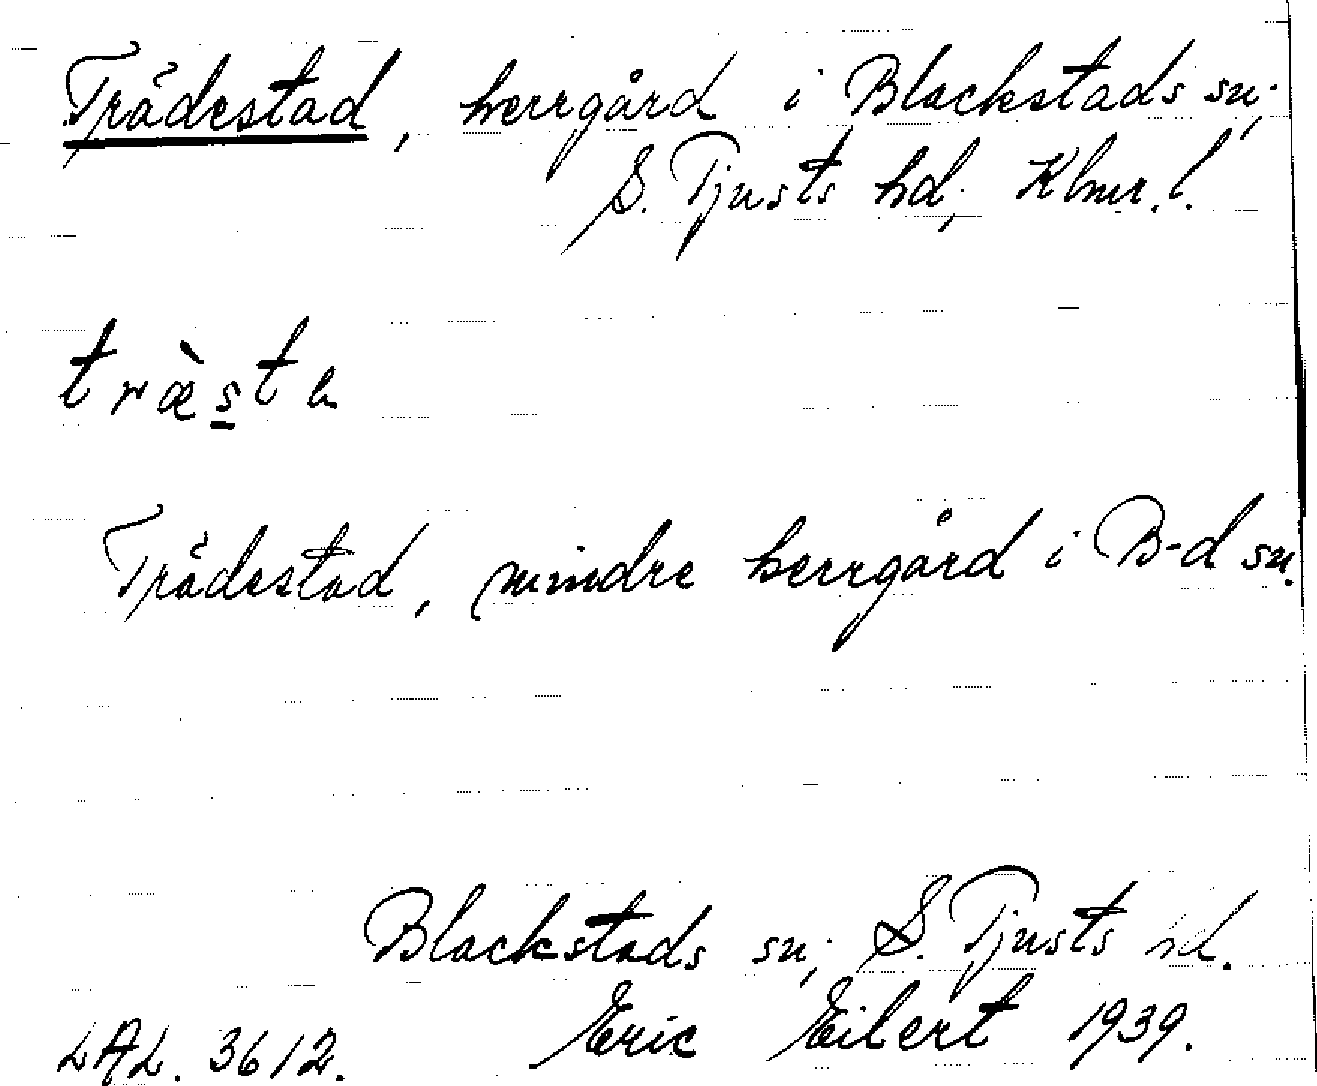 Trädestad, herrgård i Blackstads sn;
S. Tjusts hd; Klmr. l.
træ̀s̲ta
Trädestad, mindre herrgård i B-d sn.
Blackstads sn; S. Tjusts hd.
LAL. 3612. Eric Eilert 1939.